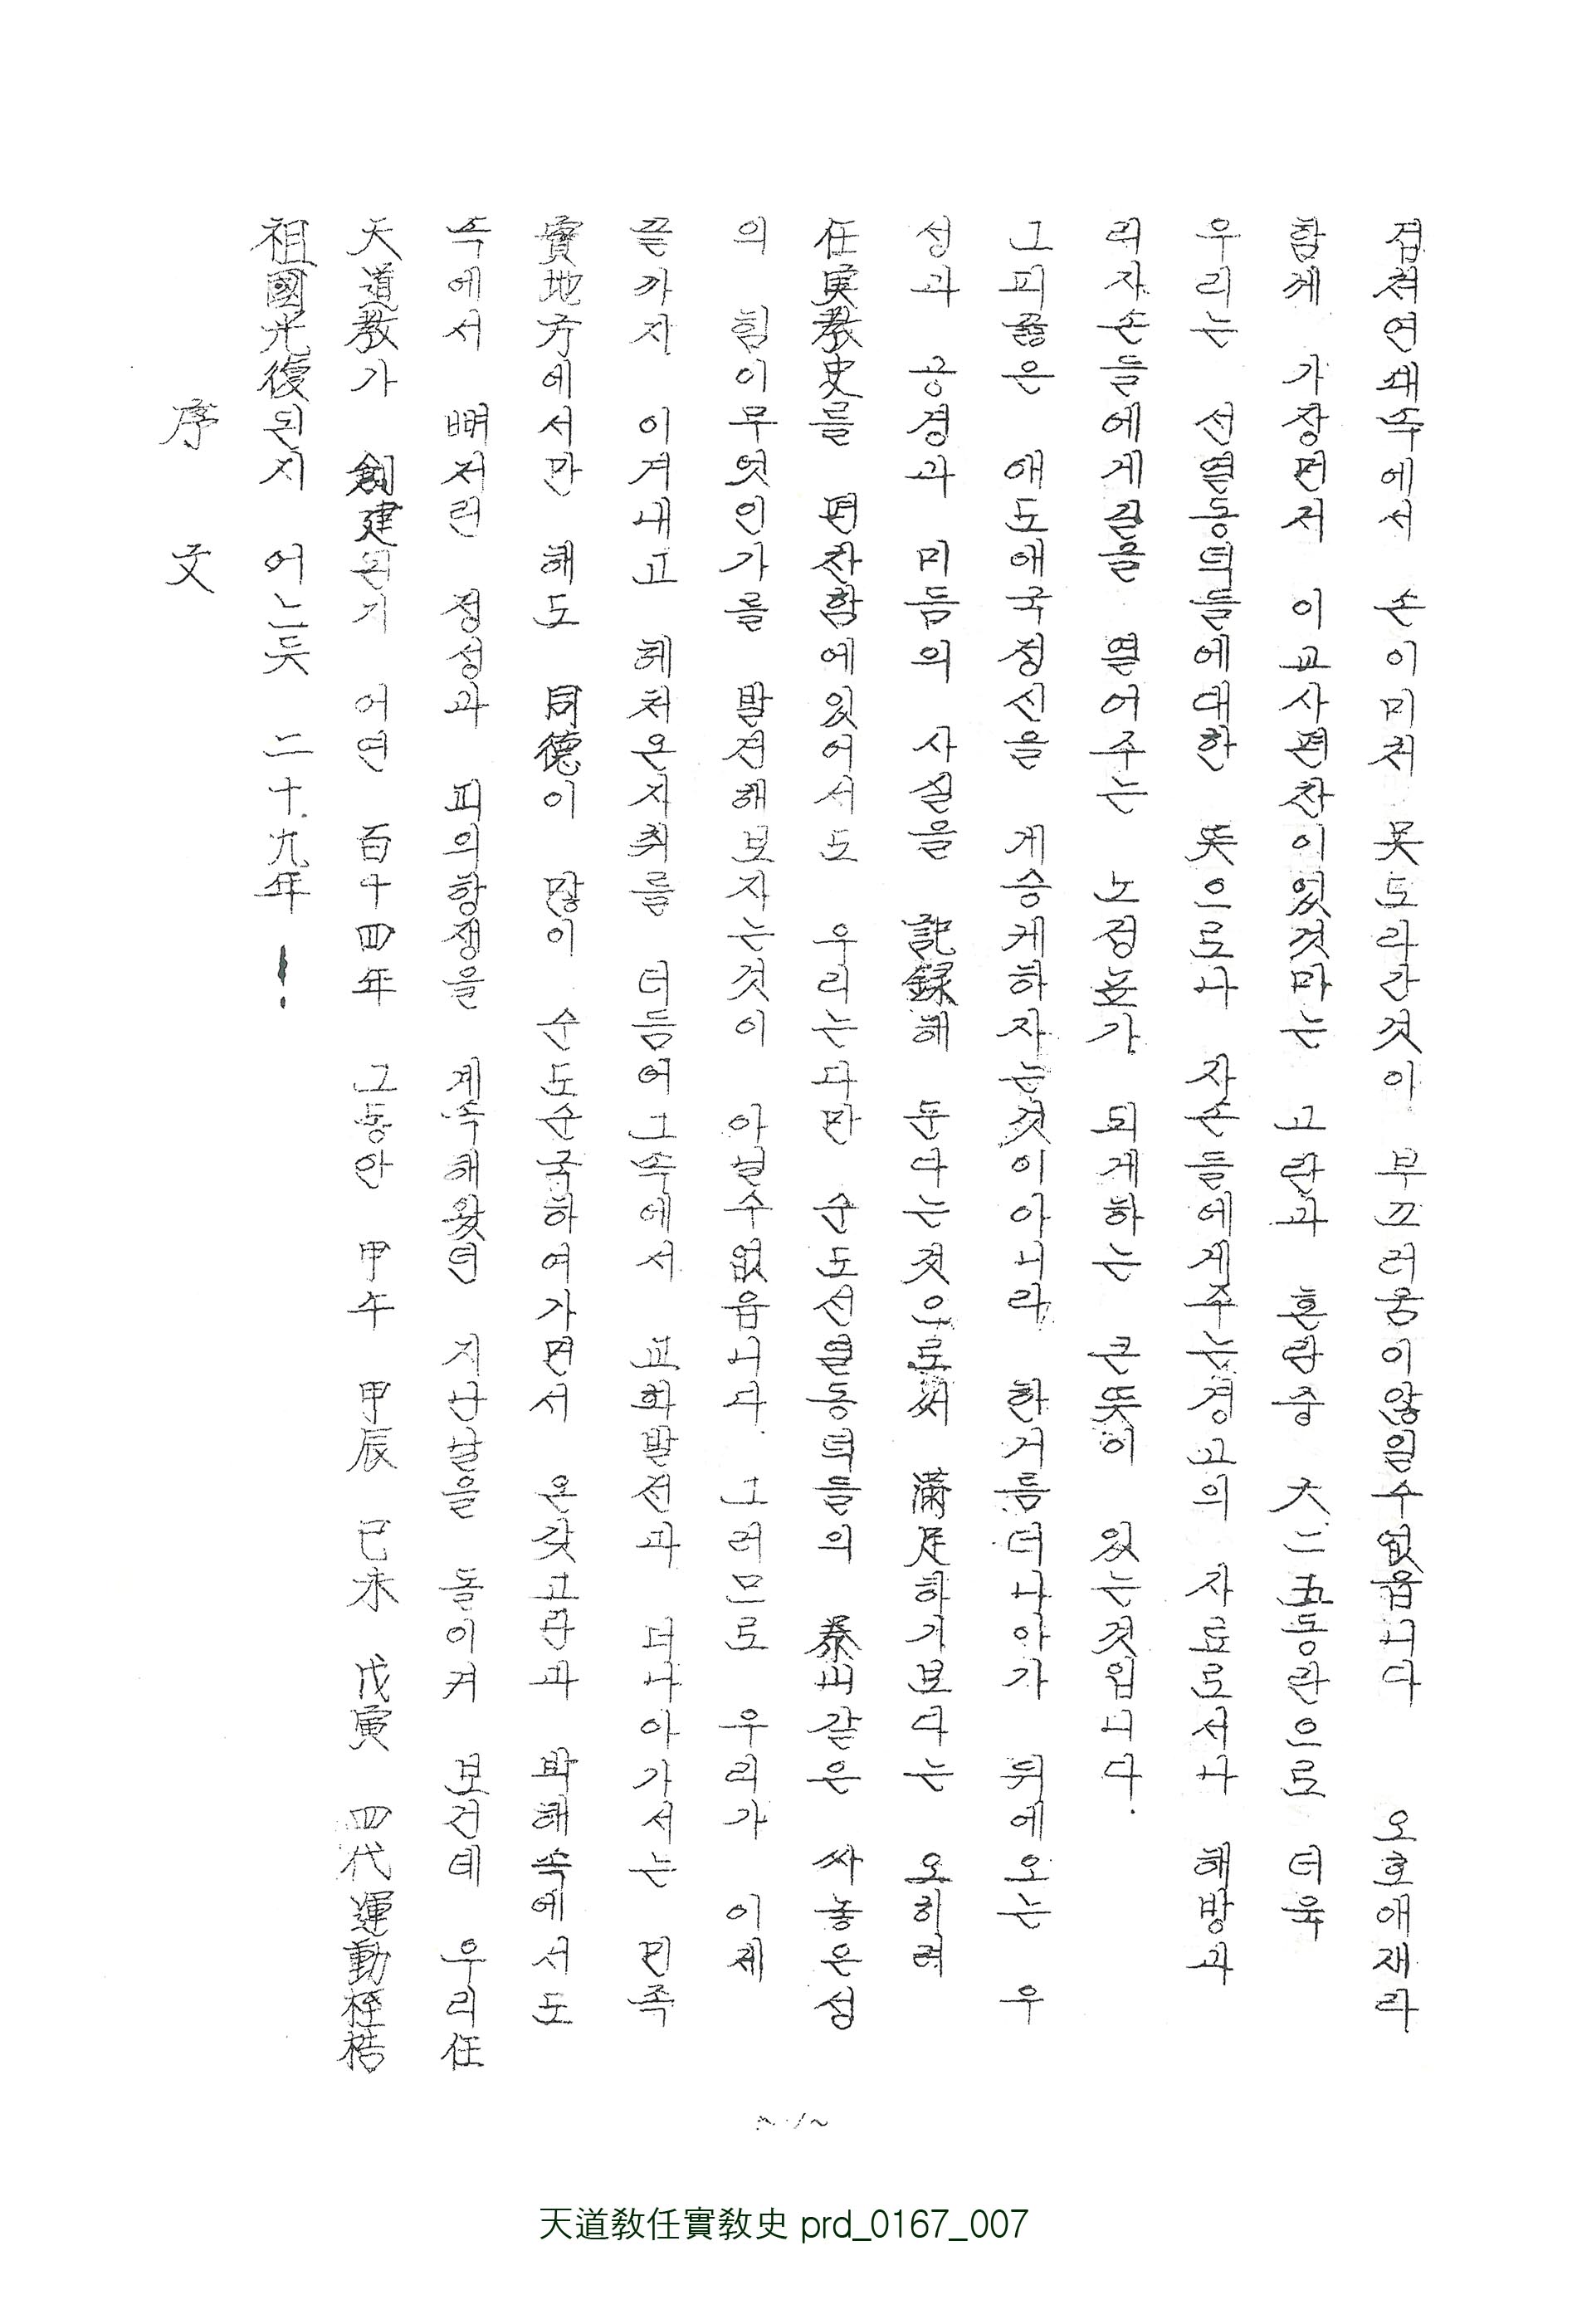 序 文
祖國光復된지 어느듯 二十九年 !
天道教가 創建된기 어연 百十四年 그동안 甲午 甲辰 己未 戊寅 四代運動桎梏
속에서 뼈저린 정성과 피의항쟁을 계속해왔던 지난날을 돌이켜 보건데 우리任
實地方에서만 해도 同德이 많이 순도순국하여가면서 온갖고란과 박해속에서도
끝까지 이겨내고 헤처온자취를 더듬어그속에서 교회발전과 더나아가서는 민족
의 힘이무엇인가를 발견해보자는것이 아닐수없읍니다. 그러므로 우리가 이제
任実教史를 편찬함에있어서도 우리는다만 순도선열동덕들의 泰山같은 싸놓은성
성과 공경과 미듬의 사실을 記録해 둔다는것으로써 満足하기보다는 오히려
그피끓은 애도애국정신을 게승케하자는것이아니라 한거름더나아가 뒤에오는 우
리자손들에게길을 열어주는 노정표가 되게하는 큰뜻이 있는것입니다.
우리는 선열동덕들에대한 뜻으로나 자손들에게주는경고의 자료로서나 해방과
함게 가장먼저 이교사편찬이있것마는 고란과 혼란중 六二五동란으로 더욱
겹쳐연쇄속에서 손이미처 못도라간것이 부끄러움이않일수없읍니다 오호애재라
~1~
天道敎任實敎史 prd_0167_007